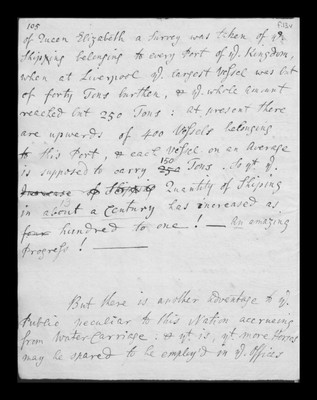 105
of Queen Elizabeth a Survey was taken of ye.
Shipping belonging to every Port of ye. Kingdom,
when at Liverpool ye. largest Vessel was but
of forty Tons burthen, & ye. whole amount
reached but 250 Tons: at present there
are upwards of 400 Vessels belonging
to this Port, & each Vessel on an Average
150
is supposed to carry 250 Tons. So yt ye.
Increase of Shipping Quantity of Shiping
in about a Century has increased as
four hundred to one! — An amazing
Progress! —
But there is another advantage to ye.
Publick peculiar to this Nation accrueing
from Water Carriage: & yt. is, yt. more Horses
may be spared to be employ'd in ye. Offices